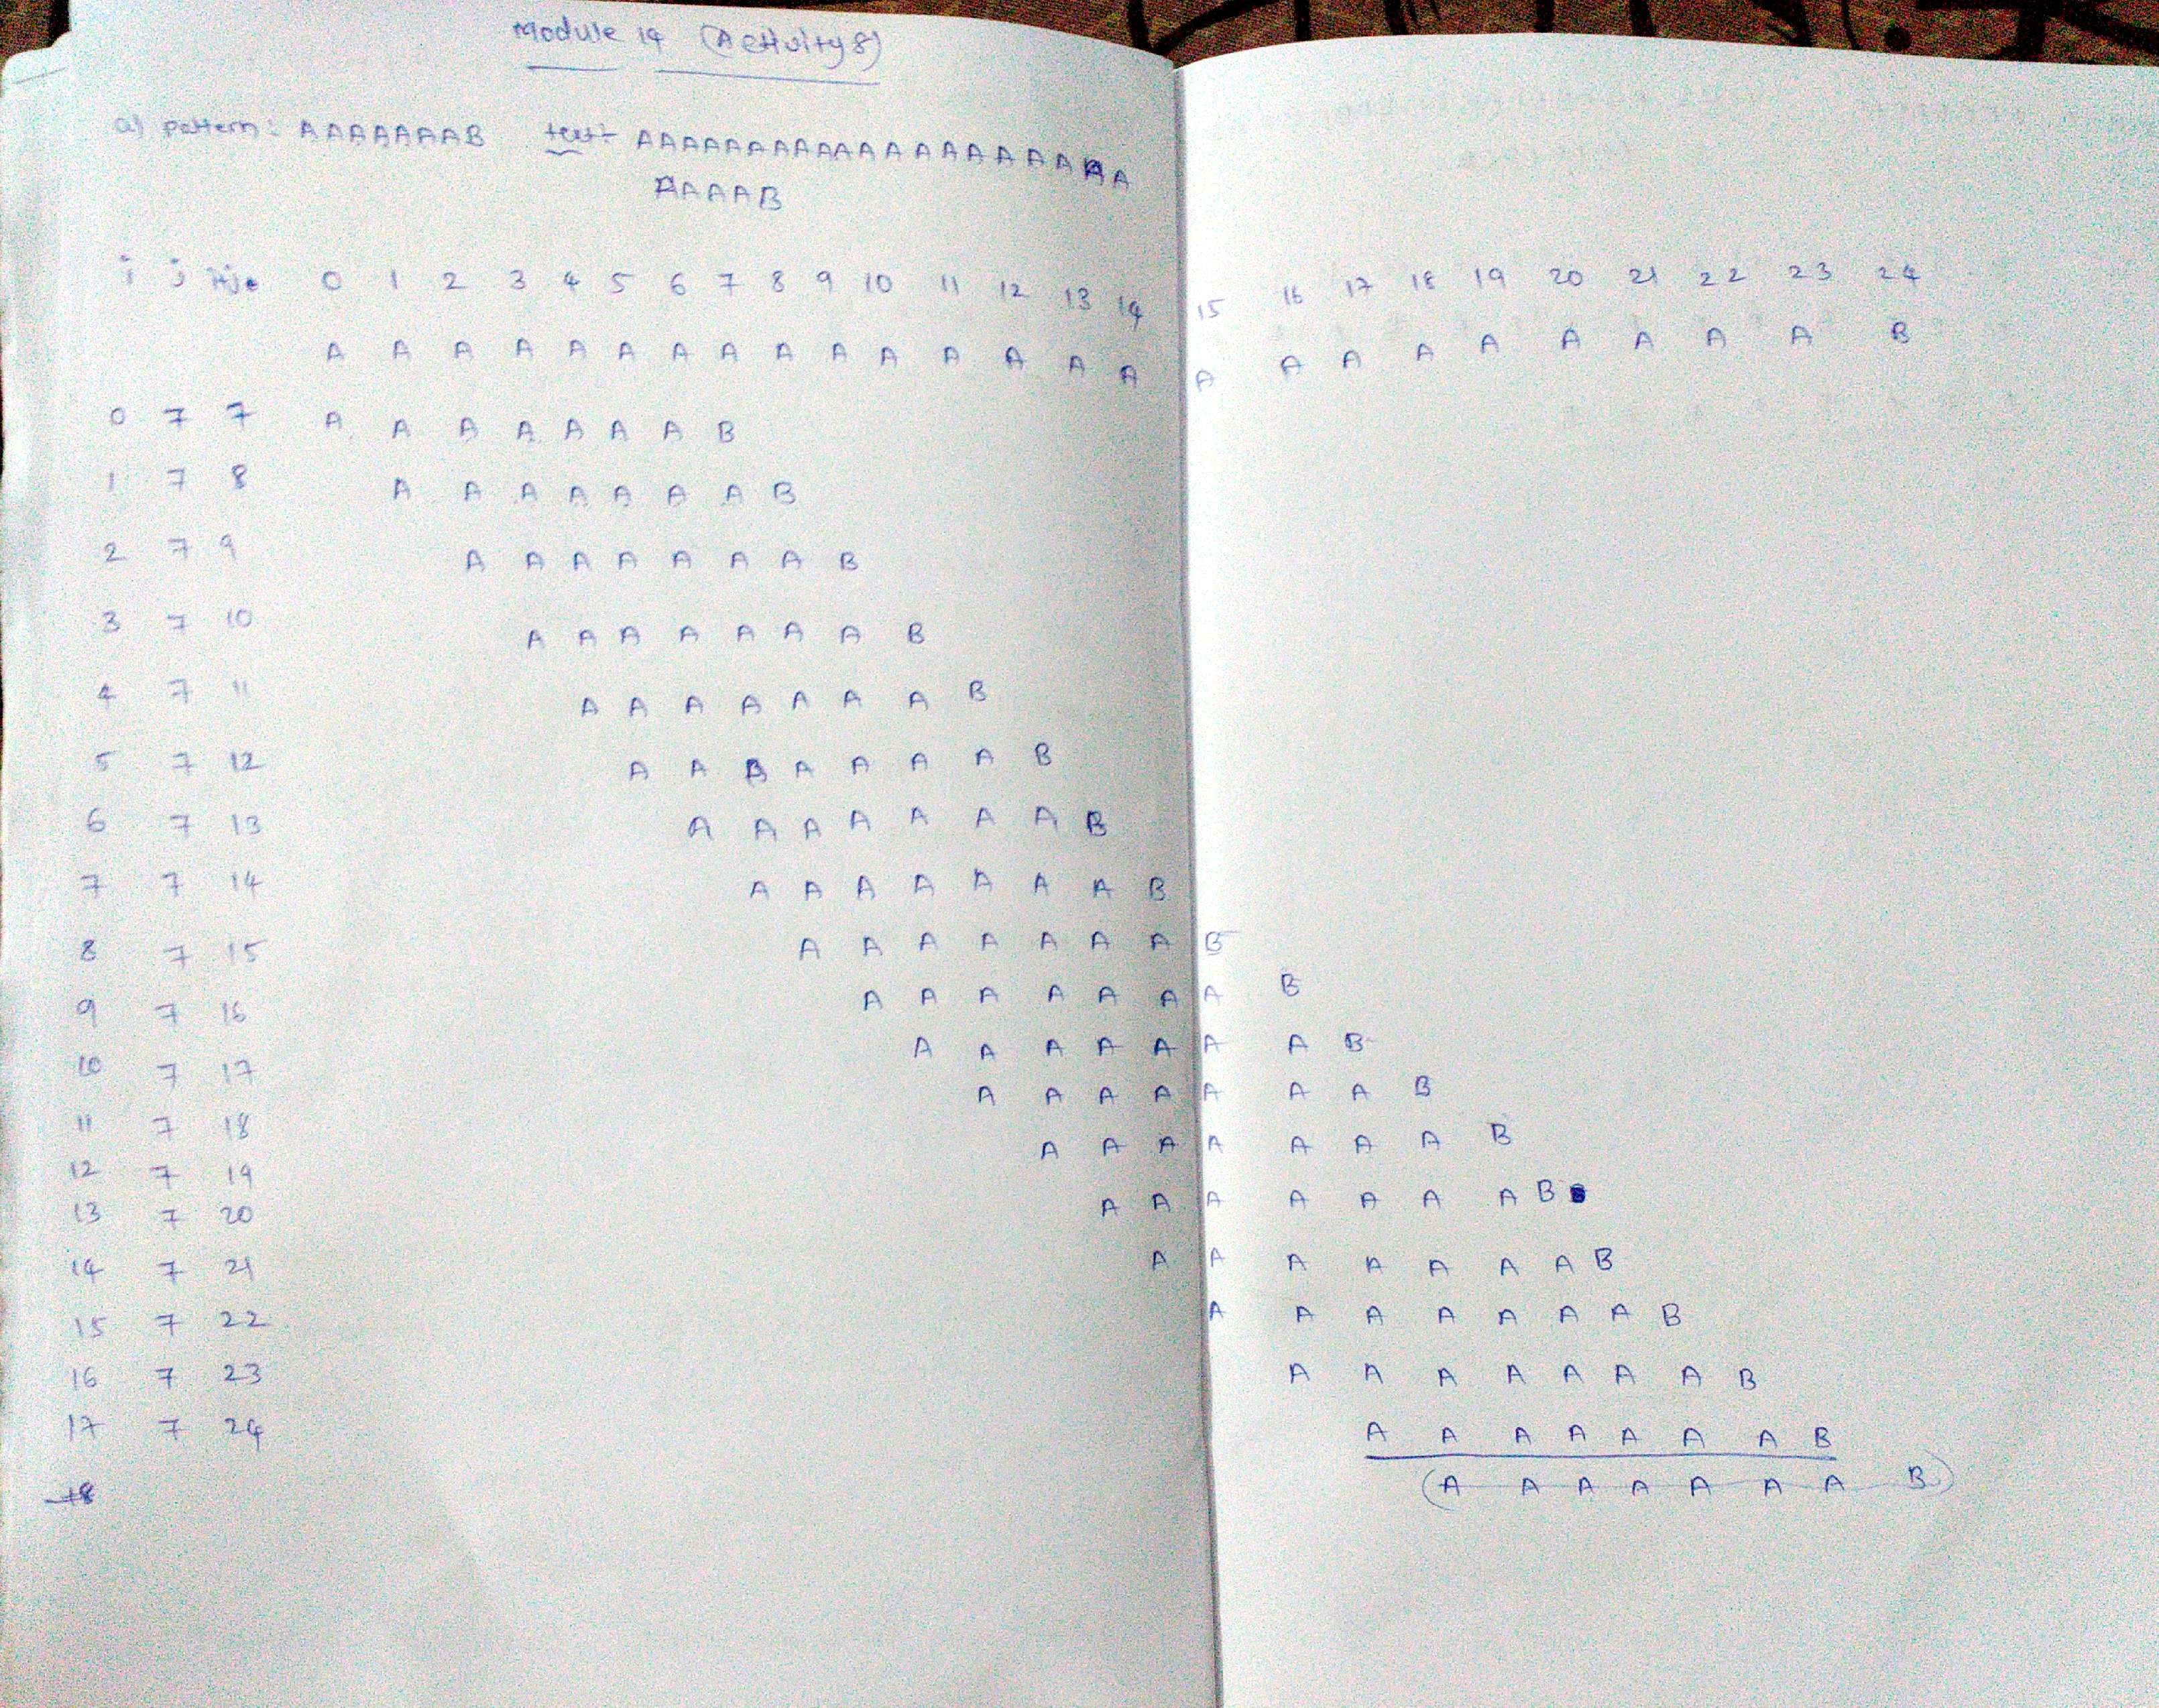 Module 14 (Activity 8)
a) pattern: AAAAAAAB text:- AAAAAAAAAAAAAAAAAAAA
AAAAB
i j i+j 0 1 2 3 4 5 6 7 8 9 10 11 12 13 14 15 16 17 18 19 20 21 22 23 24
A A A A A A A A A A A A A A A A A A A A A A A A B
0 7 7 A A A A A A A B
1 7 8 A A A A A A A B
2 7 9 A A A A A A A B
3 7 10 A A A A A A A B
4 7 11 A A A A A A A B
5 7 12 A A A A A A A B
6 7 13 A A A A A A A B
7 7 14 A A A A A A A B
8 7 15 A A A A A A A B
9 7 16 A A A A A A A B
10 7 17 A A A A A A A B
11 7 18 A A A A A A A B
12 7 19 A A A A A A A B
13 7 20 A A A A A A A B
14 7 21 A A A A A A A B
15 7 22 A A A A A A A B
16 7 23 A A A A A A A B
17 7 24 A A A A A A A B
18 (A A A A A A A B)